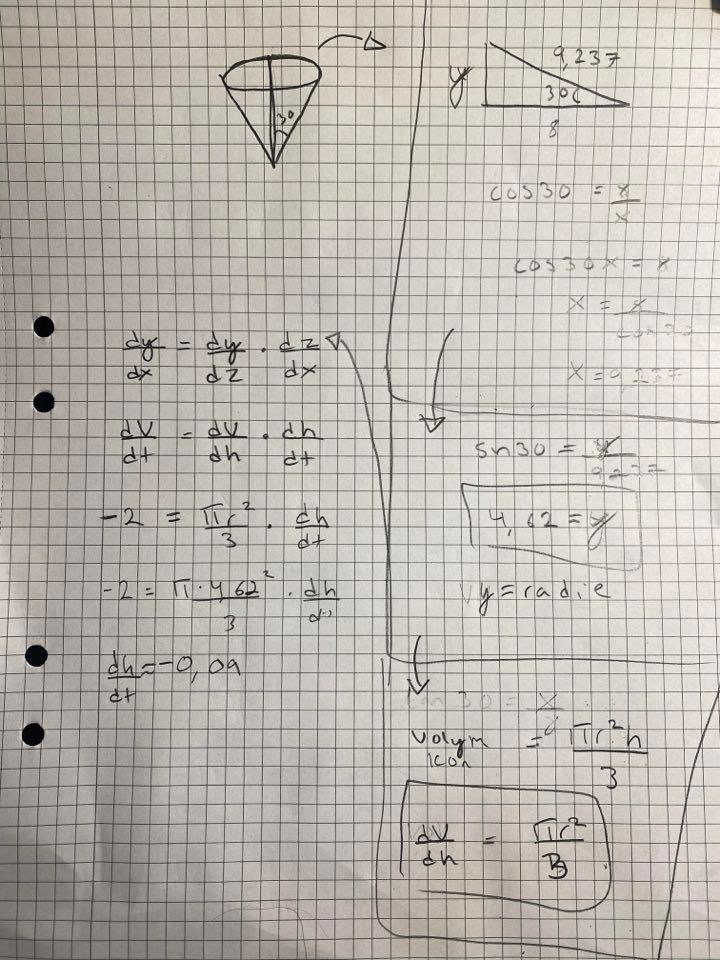 30
y
9,237
30
8
cos30 = 8/x
cos30x = 8
x = 8/cos30
x = 9,237
dy/dx = dy/dz · dz/dx
dV/dt = dV/dh · dh/dt
-2 = πr²/3 · dh/dt
-2 = π·4,62²/3 · dh/dt
dh/dt ≈ -0,09
sn30 = y/9,237
4,62 = y
y = radie
Volym = πr²h/3
kon
dV/dh = πr²/3